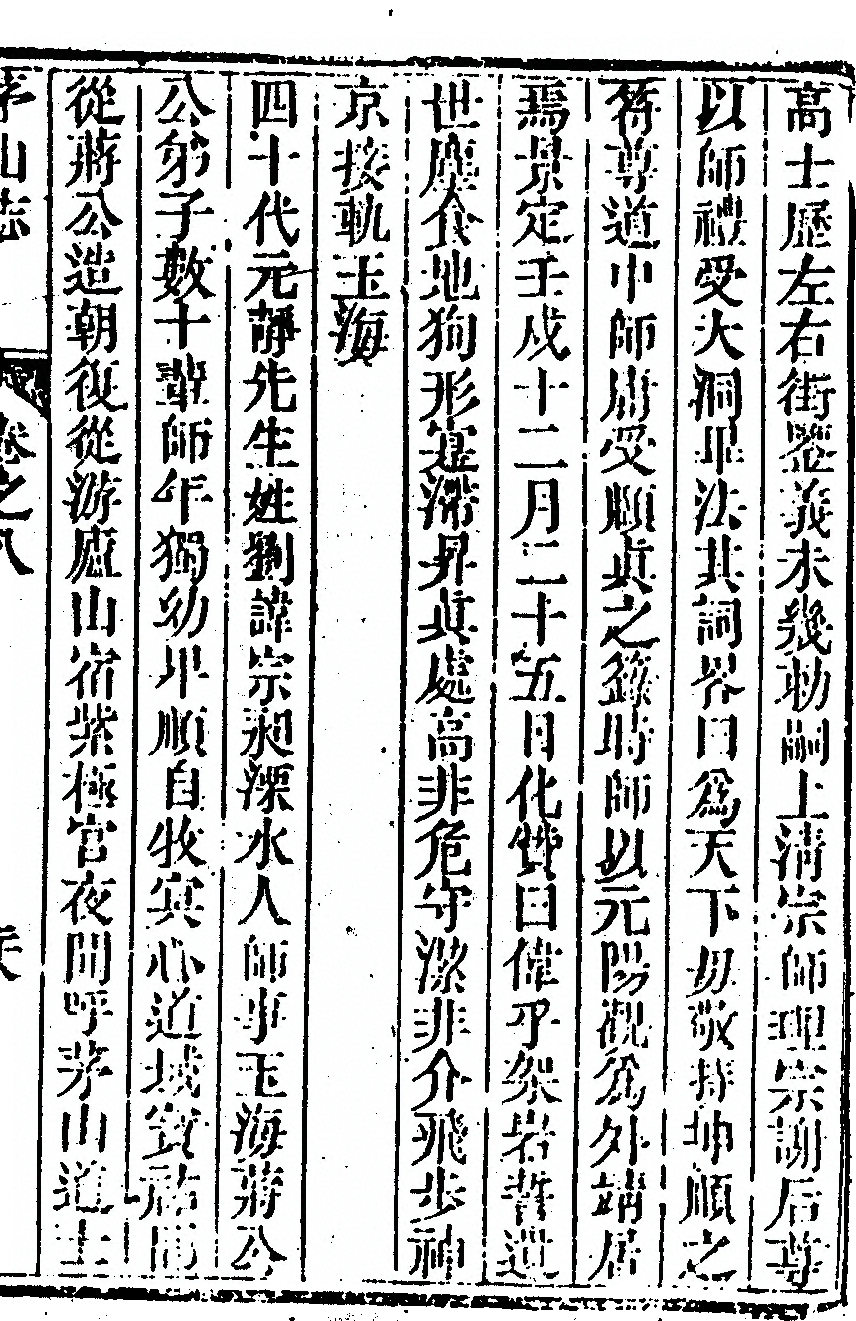 高士歷左右街鑒義未幾勅嗣上清宗師理宗謝后尊
以師禮受大洞畢法其詞畧曰爲天下毋敬持坤順之
符尊道中師庸受頤真之籙時師以元陽觀爲外靖居
焉景定壬戌十二月二十五日化贊曰偉乎架岩誓遺
世塵食地狗形寔滯昇真處高非危守潔非介飛步神
京按軌玉海
四十代元靜先生姓劉諱宗昶溧水人師事玉海蔣公
公弟子數十輩師年獨幼畢順自牧冥心道域寶祐間
從蔣公造朝復從游廬山宿紫極宮夜聞呼茅山道士
茅山志 卷之八